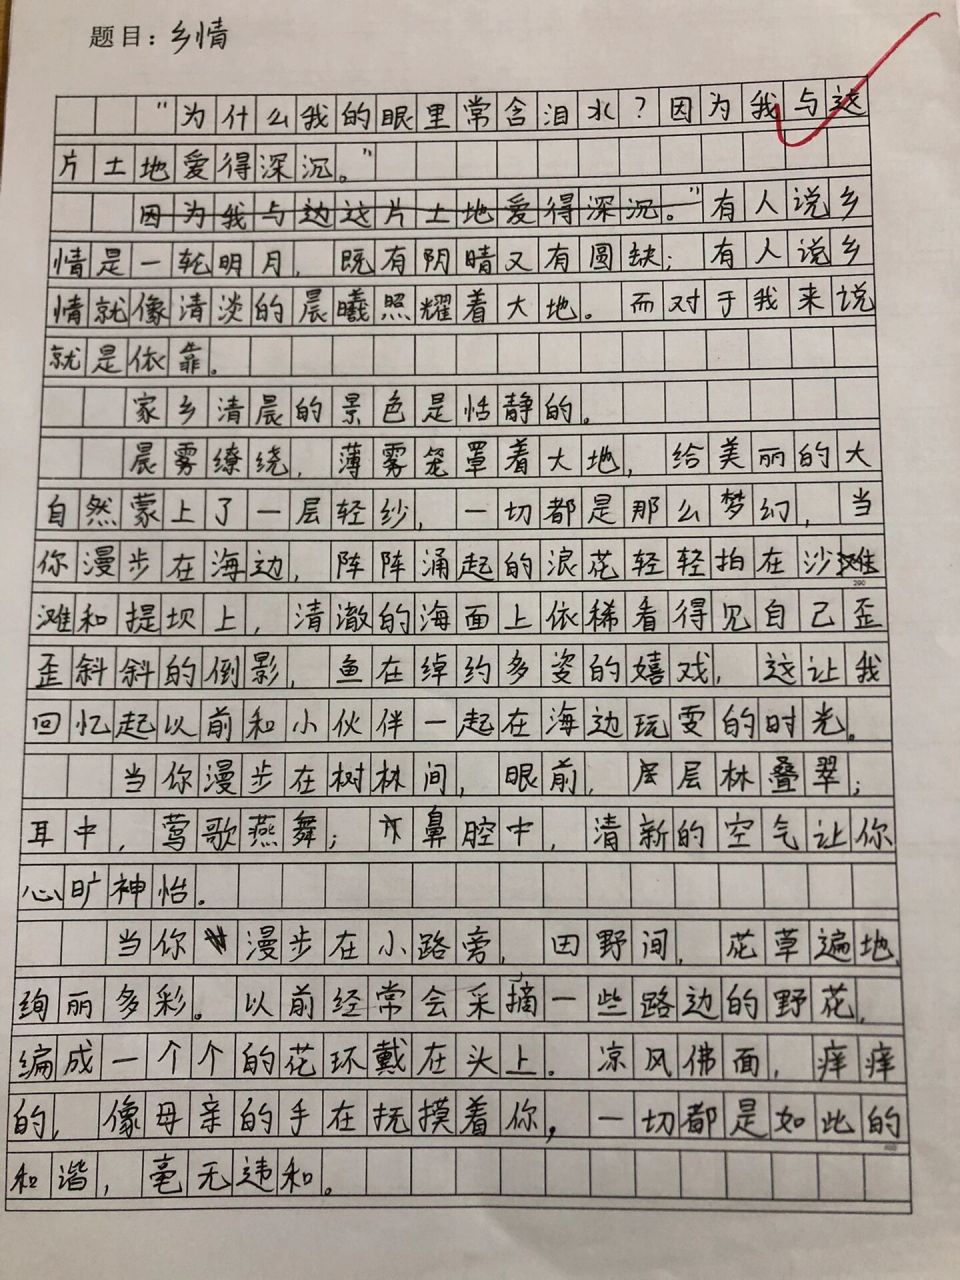 题目：乡情
“为什么我的眼里常含泪水？因为我与这
片土地爱得深沉。”
因为我与边这片土地爱得深沉。”有人说乡
情是一轮明月，既有阴晴又有圆缺；有人说乡
情就像清淡的晨曦照耀着大地。而对于我来说
就是依靠。
家乡清晨的景色是恬静的。
晨雾缭绕，薄雾笼罩着大地，给美丽的大
自然蒙上了一层轻纱，一切都是那么梦幻，当
你漫步在海边，阵阵涌起的浪花轻轻拍在沙滩
200
滩和提坝上，清澈的海面上依稀看得见自己歪
歪斜斜的倒影，鱼在绰约多姿的嬉戏，这让我
回忆起以前和小伙伴一起在海边玩耍的时光。
当你漫步在树林间，眼前，层层林叠翠；
耳中，莺歌燕舞；鼻腔中，清新的空气让你
心旷神怡。
当你漫步在小路旁，田野间，花草遍地，
绚丽多彩。以前经常会采摘一些路边的野花，
编成一个个的花环戴在头上。凉风佛面，痒痒
的，像母亲的手在抚摸着你，一切都是如此的
400
和谐，毫无违和。